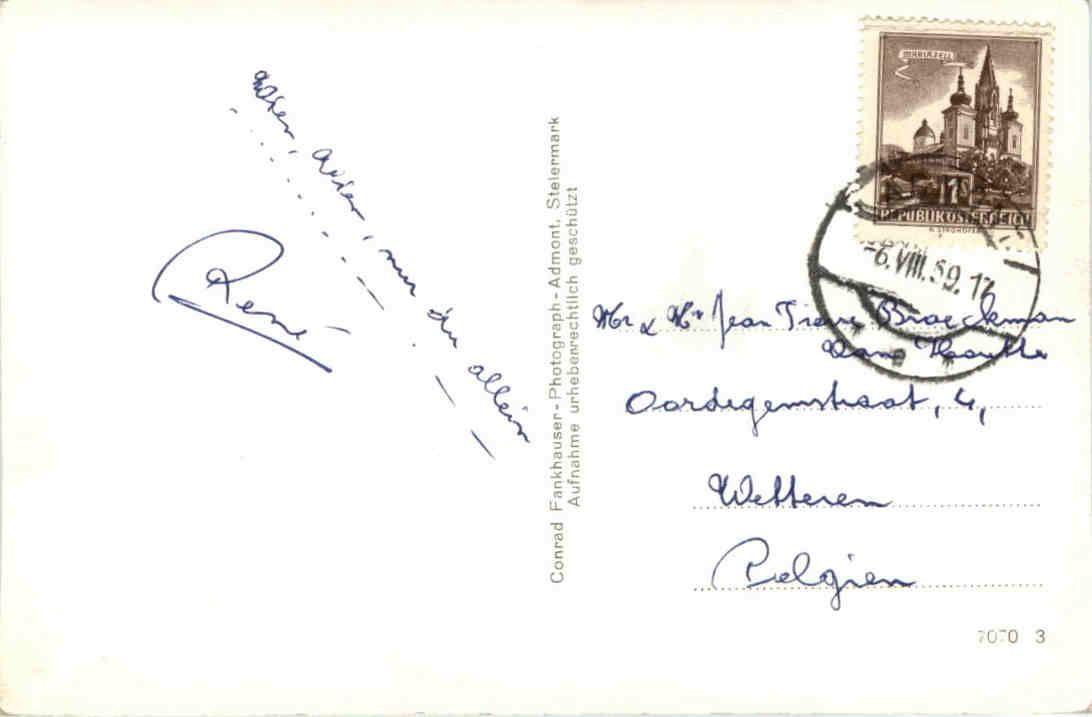 Adler, Adler, nur du allein
René
Conrad Fankhauser - Photograph - Admont, Steiermark
Aufnahme urheberrechtlich geschützt
MARIAZELL
1S
REPUBLIK ÖSTERREICH
-6.VIII.59.17
Mr & Mr Jean Pierre Broeckman
Van Houtte
Oordegemstraat, 4,
Wetteren
Belgien
7070 3